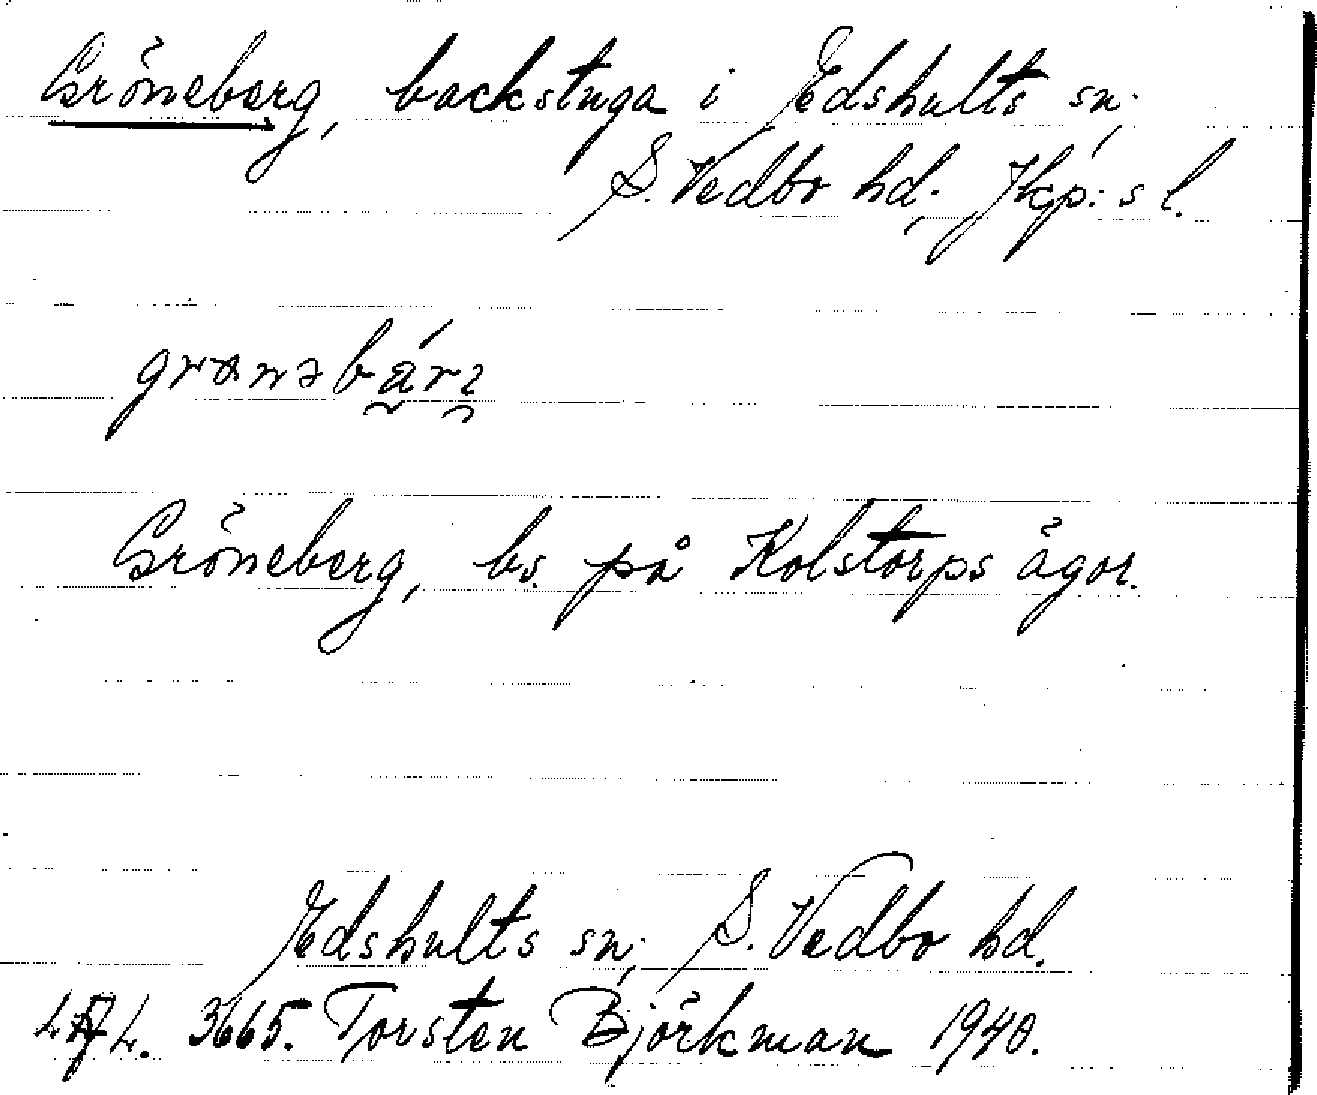 Gröneberg, backstuga i Edshults sn.,
S. Vedbo hd., Jkp:s l.
Gröneberg, bs. på Kolstorps ägor.
Edshults sn., S. Vedbo hd.
3665. Torsten Björkman 1940.